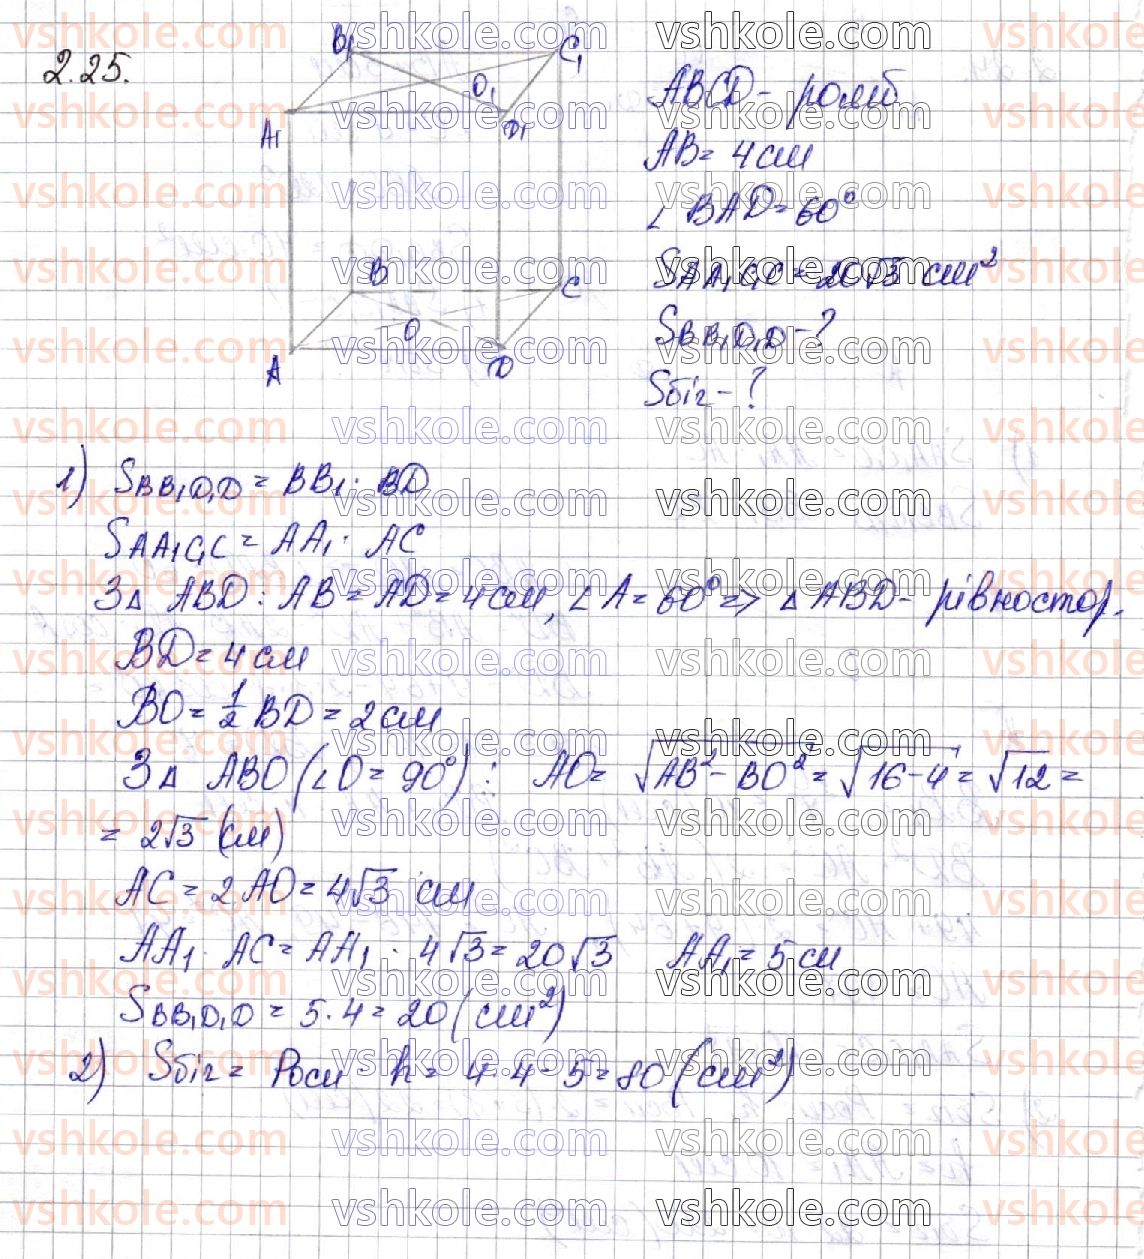 2.25.
B₁ C₁
O₁
A₁ D₁
B C
O
A D
ABCD - ромб
AB = 4 см
∠BAD = 60°
S_AA₁C₁C = 20√3 см²
S_BB₁D₁D - ?
Sбіг - ?
1) S_BB₁D₁D = BB₁ · BD
S_AA₁C₁C = AA₁ · AC
З △ ABD: AB = AD = 4 см, ∠A = 60° => △ ABD - рівностор.
BD = 4 см
BO = 1/2 BD = 2 см
З △ ABO (∠O = 90°): AO = √(AB² - BO²) = √(16 - 4) = √12 =
= 2√3 (см)
AC = 2AO = 4√3 см
AA₁ · AC = AA₁ · 4√3 = 20√3 AA₁ = 5 см
S_BB₁D₁D = 5 · 4 = 20 (см²)
2) Sбіг = Pосн · h = 4 · 4 · 5 = 80 (см²)
vshkole.com